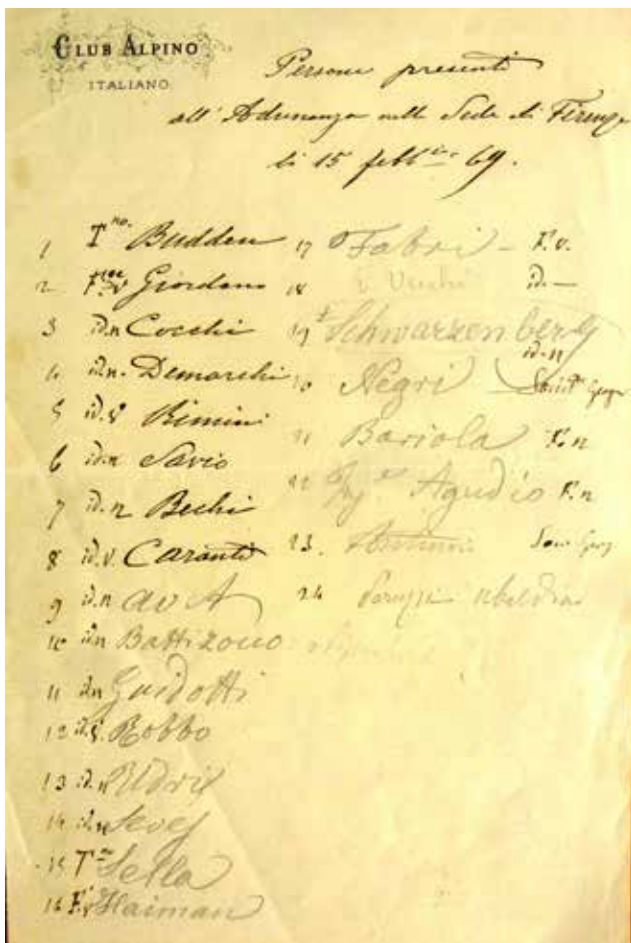 CLUB ALPINO
ITALIANO.
Persone presenti
all'Adunanza nella Sede di Firenze
li 15 febb 69.
1 Tno. Budden
2 Giordano
3 id.n Cocchi
4 id.n. Demarchi
5 id.v Rimini
6 id.n Savio
7 id.n Bechi
8 id.v. Caranti
9 id.n
10 id.n Battizono
11 id.n Guidotti
12 id.v. Robbo
13 id.n
14 id.n
15 Sella
16 F.v Haiman
17 Fabri - F.v.
18 id. -
19 Schwarzenberg
id.n
20 Negri
21 Bariola F.n
22 Agudio F.n
23.
24 Peruzzi Ubaldino